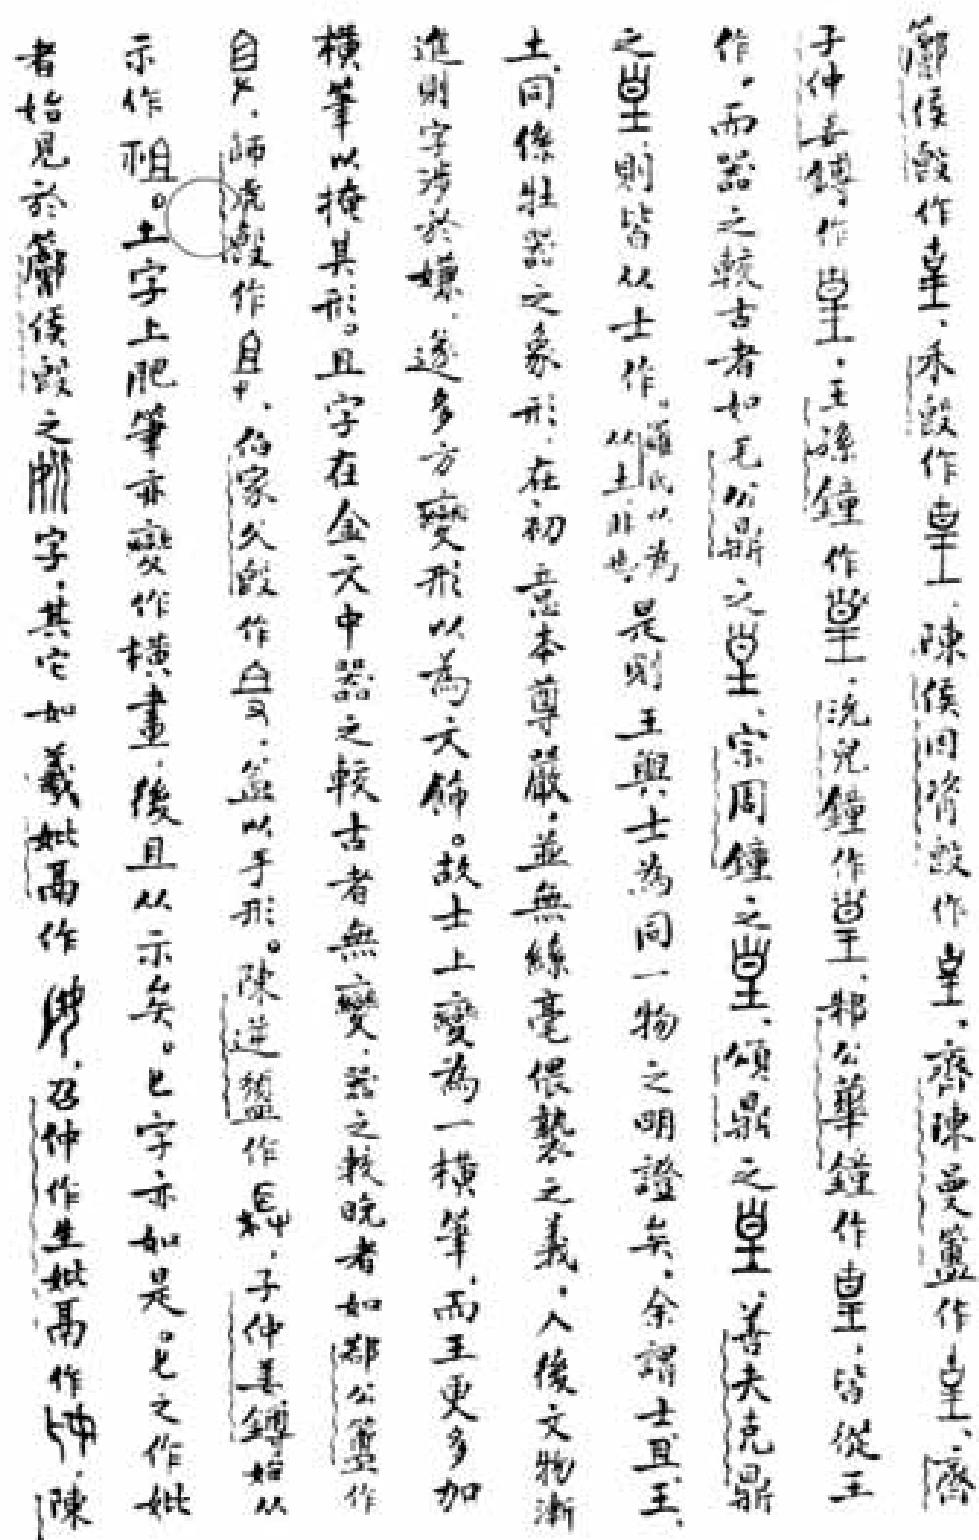 侯𣪘作皇，禾𣪘作皇，陳侯因𬃼𣪘作皇。齊陳曼簠作皇，齊
子仲姜鎛作皇，王孫鐘作皇，沇兒鐘作皇，邾公華鐘作皇，皆從王
作。而器之較古者如毛公鼎之皇，宗周鐘之皇，頌鼎之皇，善夫克鼎
之皇，則皆从士作。羅氏以為从土，非也。是則王與士為同一物之明證矣。余謂士、且、王、
土，同係牡器之象形，在初意本尊嚴，並無絲毫偎褻之義。入後文物漸
進則字涉於嫌，遂多方變形以為文飾。故士上變為一橫筆，而王更多加
橫筆以掩其形。且字在金文中器之較古者無變，器之較晚者如都公簠作
，師虎𣪘作，伯家父𣪘作，益以手形。陳逆簠作，子仲姜鎛始从
示作祖。土字上肥筆亦變作橫畫，後且从示矣。匕字亦如是。匕之作妣
者始見於侯𣪘之字，其它如羲妣鬲作，召仲作生妣鬲作，陳